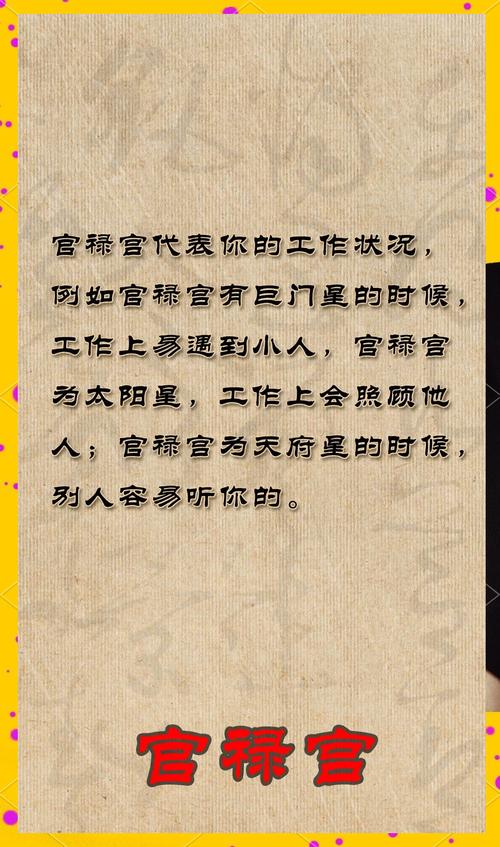 官禄宫代表你的工作状况，
例如官禄宫有巨门星的时候，
工作上易遇到小人，官禄宫
为太阳星，工作上会照顾他
人；官禄宫为天府星的时候，
别人容易听你的。
官禄宫